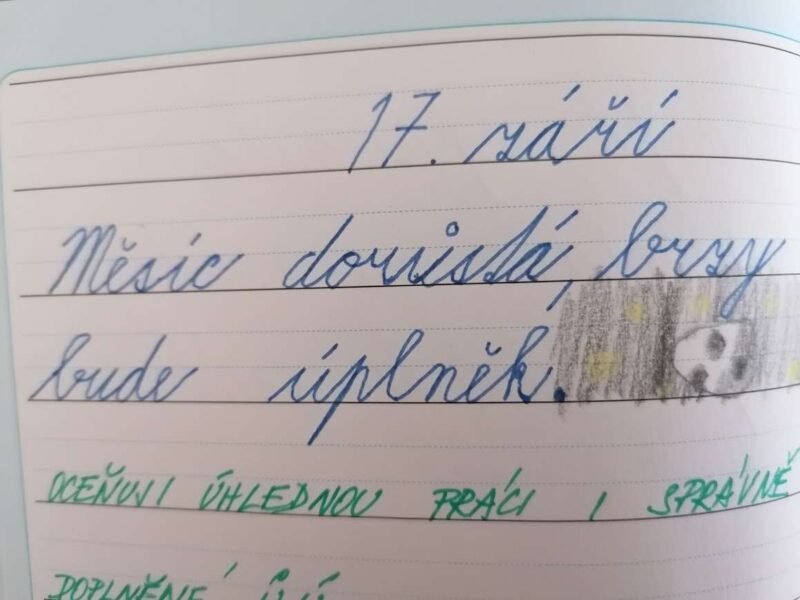 17. září
Měsíc dorůstá, brzy
bude úplněk.
OCEŇUJI ÚHLEDNOU PRÁCI I SPRÁVNĚ
DOPLNĚNÉ